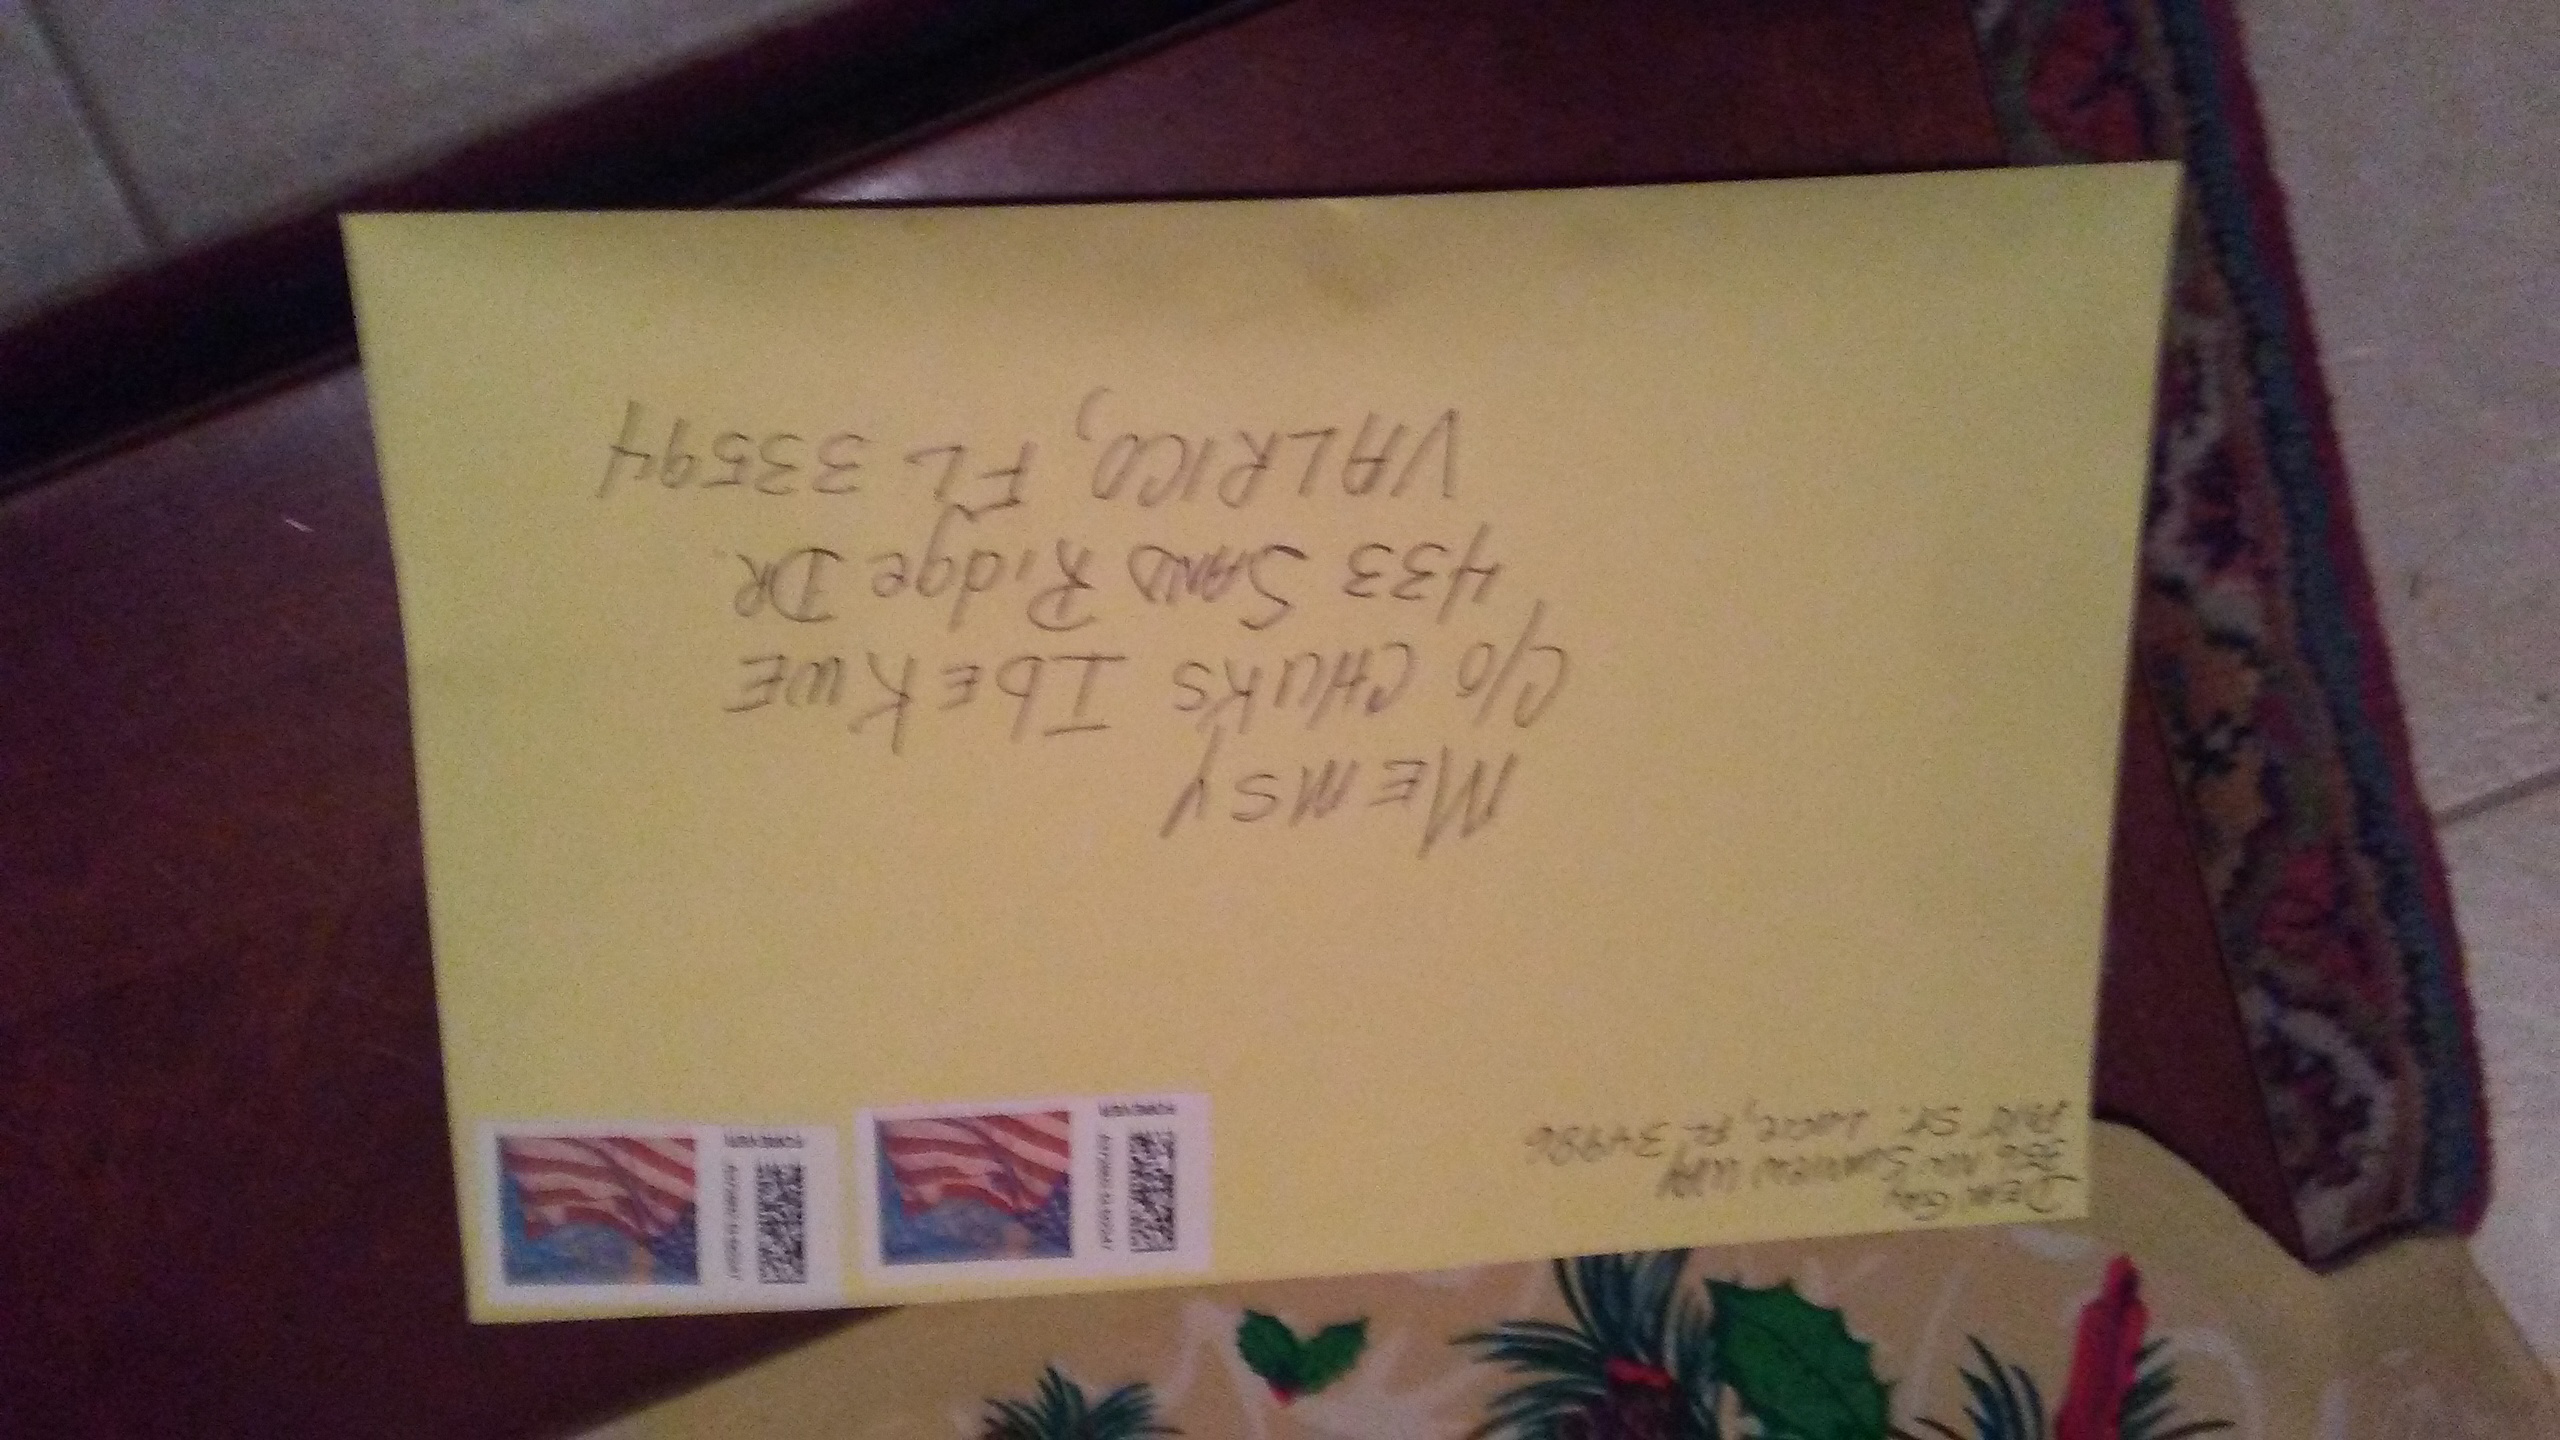 DEAN GAY
356 NW SUNVIEW WAY
PORT ST. LUCIE, FL 34986
FOREVER
FOREVER
MEMSY
C/O CHUKS IbEKWE
433 SAND Ridge DR.
VALRICO, FL 33594